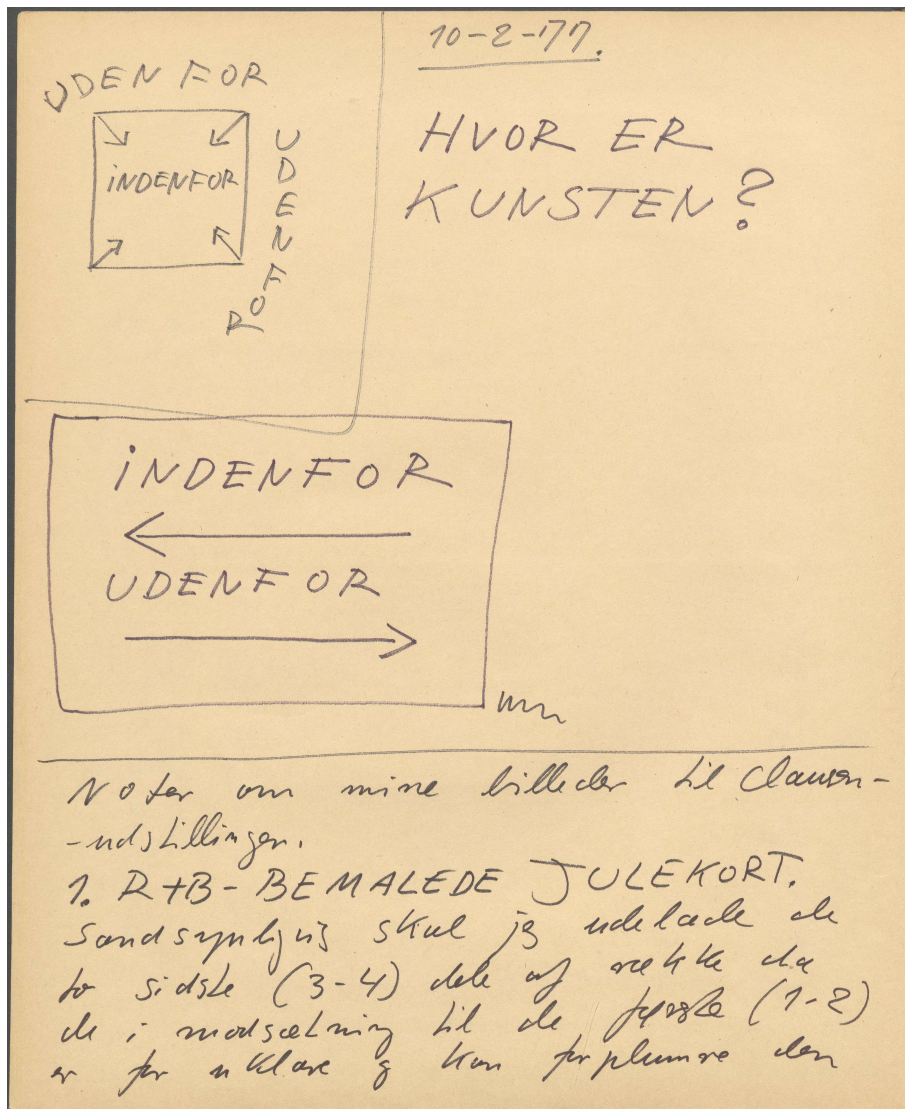 UDENFOR
INDENFOR
UDENFOR
10-2-77.
HVOR ER
KUNSTEN?
INDENFOR
UDENFOR
Noter om mine billeder til Clausen-
-udstillingen.
1. R+B-BEMALEDE JULEKORT.
Sandsynligvis skal jeg udelade de
to sidste (3-4) dele af række da
de i modsætning til de første (1-2)
er for uklare og kan forplumre den